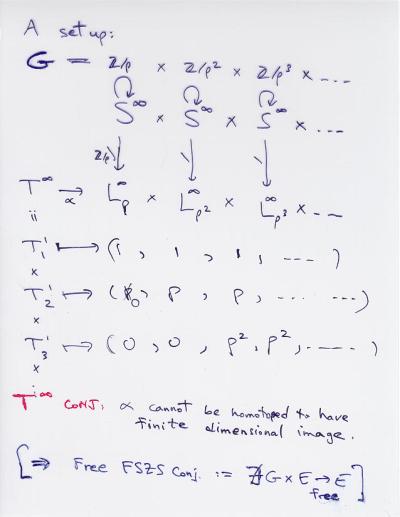 A set up:
G = Z/p × Z/p² × Z/p³ × ----
S^∞ × S^∞ × S^∞ × ---
Z/p
T^∞ →α L_p^∞ × L_{p²}^∞ × L_{p³}^∞ × ---
ii
T₁¹ ↦ (1, 1, 1, ---- )
×
T₂¹ ↦ (0, p, p, ---- ---)
×
T₃¹ ↦ (0, 0, p², p², ------)
×
T^∞ CONJ: α cannot be homotoped to have
finite dimensional image.
[⇒ Free FSZS Conj. := ∄ G × E → E]
free